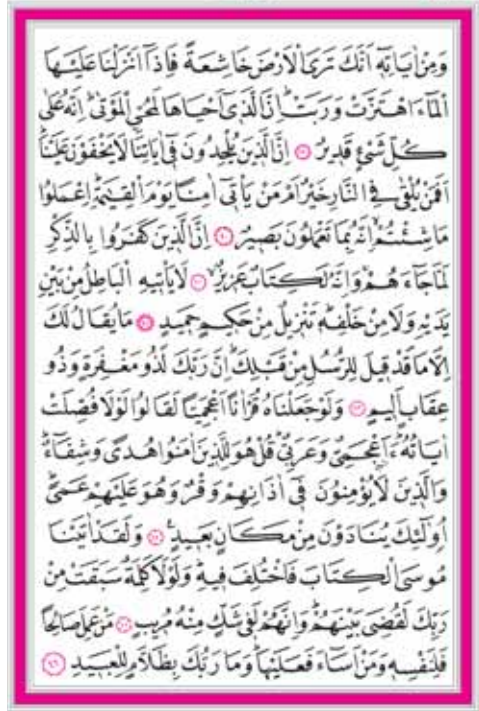 وَمِنْ اٰيَاتِه۪ٓ اَنَّكَ تَرَى الْاَرْضَ خَاشِعَةً فَاِذَٓا اَنْزَلْنَا عَلَيْهَا
الْمَٓاءَ اهْتَزَّتْ وَرَبَتْۜ اِنَّ الَّذ۪ٓي اَحْيَاهَا لَمُحْيِ الْمَوْتٰىۜ اِنَّهُ عَلٰى
كُلِّ شَيْءٍ قَد۪يرٌ ﴿٣٩﴾ اِنَّ الَّذ۪ينَ يُلْحِدُونَ ف۪ٓي اٰيَاتِنَا لَا يَخْفَوْنَ عَلَيْنَاۜ
اَفَمَنْ يُلْقٰى فِي النَّارِ خَيْرٌ اَمْ مَنْ يَأْت۪ٓي اٰمِنًا يَوْمَ الْقِيٰمَةِۜ اِعْمَلُوا
مَا شِئْتُمْۙ اِنَّهُ بِمَا تَعْمَلُونَ بَص۪يرٌ ﴿٤٠﴾ اِنَّ الَّذ۪ينَ كَفَرُوا بِالذِّكْرِ
لَمَّا جَٓاءَهُمْۚ وَاِنَّهُ لَكِتَابٌ عَز۪يزٌۙ ﴿٤١﴾ لَا يَأْت۪يهِ الْبَاطِلُ مِنْ بَيْنِ
يَدَيْهِ وَلَا مِنْ خَلْفِه۪ۜ تَنْز۪يلٌ مِنْ حَك۪يمٍ حَم۪يدٍ ﴿٤٢﴾ مَا يُقَالُ لَكَ
اِلَّا مَا قَدْ ق۪يلَ لِلرُّسُلِ مِنْ قَبْلِكَۜ اِنَّ رَبَّكَ لَذُو مَغْفِرَةٍ وَذُو
عِقَابٍ اَل۪يمٍ ﴿٤٣﴾ وَلَوْ جَعَلْنَاهُ قُرْاٰنًا اَعْجَمِيًّا لَقَالُوا لَوْلَا فُصِّلَتْ
اٰيَاتُهُۜ ءَاَۭعْجَمِيٌّ وَعَرَبِيٌّۜ قُلْ هُوَ لِلَّذ۪ينَ اٰمَنُوا هُدًى وَشِفَٓاءٌۜ
وَالَّذ۪ينَ لَا يُؤْمِنُونَ ف۪ٓي اٰذَانِهِمْ وَقْرٌ وَهُوَ عَلَيْهِمْ عَمًىۜ
اُو۬لٰٓئِكَ يُنَادَوْنَ مِنْ مَكَانٍ بَع۪يدٍ۟ ﴿٤٤﴾ وَلَقَدْ اٰتَيْنَا
مُوسَى الْكِتَابَ فَاخْتُلِفَ ف۪يهِۜ وَلَوْلَا كَلِمَةٌ سَبَقَتْ مِنْ
رَبِّكَ لَقُضِيَ بَيْنَهُمْۜ وَاِنَّهُمْ لَف۪ي شَكٍّ مِنْهُ مُر۪يبٍ ﴿٤٥﴾ مَنْ عَمِلَ صَالِحًا
فَلِنَفْسِه۪ وَمَنْ اَسَٓاءَ فَعَلَيْهَاۜ وَمَا رَبُّكَ بِظَلَّامٍ لِلْعَب۪يدِ ﴿٤٦﴾